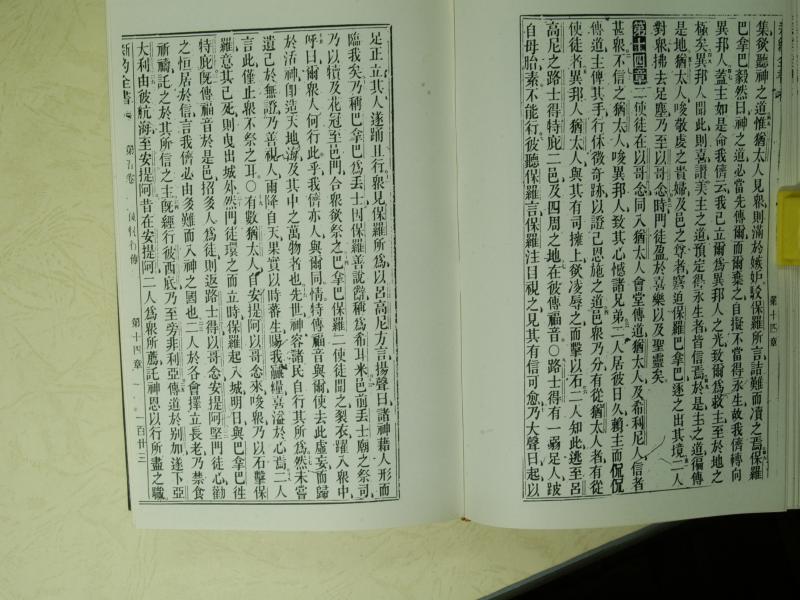 集欲聽神之道惟猶太人見衆則滿於嫉妒駁保羅所言詰難而瀆之焉保羅
巴拿巴毅然曰神之道必當先傳爾而爾棄之自擬不當得永生故我儕轉向
異邦人蓋主如是命我儕云我已立爾爲異邦人之光致爾爲救主至於地之
極矣異邦人聞此則喜讚美主之道預定得永生者皆信焉於是主之道徧傳
是地猶太人唆敬虔之貴婦及邑之尊者窘迫保羅巴拿巴逐之出其境二人
對衆拂去足塵乃至以哥念時門徒盈於喜樂以及聖靈矣
第十四章 二使徒在以哥念同入猶太人會堂傳道猶太人及希利尼人信者
甚衆不信之猶太人唆異邦人致其心憾諸兄弟二人居彼日久賴主而侃侃
傳道主俾其手行休徵奇跡以證己恩施之道邑衆乃分有從猶太人者有從
使徒者異邦人猶太人與其有司擁上欲凌辱之而擊以石二人知此逃至呂
高尼之路士得特庇二邑及四周之地在彼傳福音○路士得有一弱足人跛
自母胎素不能行彼聽保羅言保羅注目視之見其有信可愈乃大聲曰起以
第十四章
足正立其人遂踊且行衆見保羅所爲以呂高尼方言揚聲曰諸神藉人形而
臨我矣乃稱巴拿巴爲丟士因保羅善說辭稱爲希耳米邑前丟士廟之祭司
乃以犢及花冠至邑門合衆欲祭之巴拿巴保羅二使徒聞之裂衣躍入衆中
呼曰爾衆人何行此乎我儕亦人與爾同情特傳福音與爾使去此虛妄而歸
於活神卽造天地海及其中之萬物者也先世神容諸民自行其所爲然未嘗
遺己於無證乃善視人雨降自天果實以時蕃生賜我糧喜溢於心焉二人
言此僅止衆不祭之耳○有數猶太人自安提阿以哥念來唆衆乃以石擊保
羅意其已死則曳出城外然門徒環之而立時保羅起入城明日與巴拿巴徃
特庇旣傳福音於是邑招多人爲徒則返路士得以哥念安提阿堅門徒心勸
之恒居於信言我儕必由多難而入神之國也二人於各會擇立長老乃禁食
祈禱託之於其所信之主旣經行彼西底乃至旁非利亞傳道於別加遂下亞
大利由彼航海至安提阿昔在安提阿二人爲衆所薦託神恩以行所盡之職
新約全書 第五卷 使徒行傳 第十四章 一百廿三